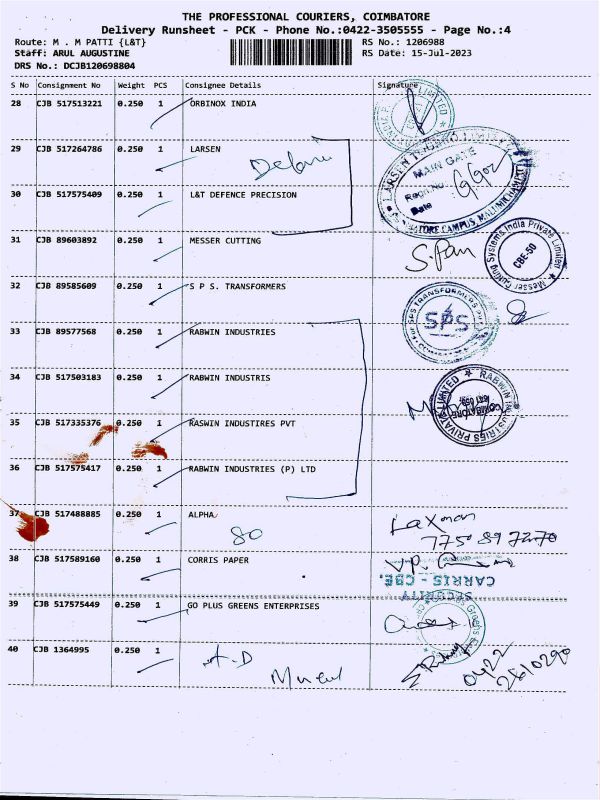 THE PROFESSIONAL COURIERS, COIMBATORE
Delivery Runsheet - PCK - Phone No.:0422-3505555 - Page No.:4
Route: M . M PATTI {L&T} RS No.: 1206988
Staff: ARUL AUGUSTINE RS Date: 15-Jul-2023
DRS No.: DCJB120698804
S No Consignment No Weight PCS Consignee Details Signature
28 CJB 517513221 0.250 1 ORBINOX INDIA
29 CJB 517264786 0.250 1 LARSEN
MAIN GATE
30 CJB 517575409 0.250 1 L&T DEFENCE PRECISION
Date
31 CJB 89603892 0.250 1 MESSER CUTTING
CBE-50
32 CJB 89585609 0.250 1 S P S. TRANSFORMERS
SPS
33 CJB 89577568 0.250 1 RABWIN INDUSTRIES
34 CJB 517503183 0.250 1 RABWIN INDUSTRIS
35 CJB 517335376 0.250 1 RASWIN INDUSTIRES PVT
36 CJB 517575417 0.250 1 RABWIN INDUSTRIES (P) LTD
37 CJB 517488885 0.250 1 ALPHA
80
Laxman
38 CJB 517589160 0.250 1 CORRIS PAPER
SECURITY
CARRIS - CBE.
39 CJB 517575449 0.250 1 GO PLUS GREENS ENTERPRISES
40 CJB 1364995 0.250 1
0422